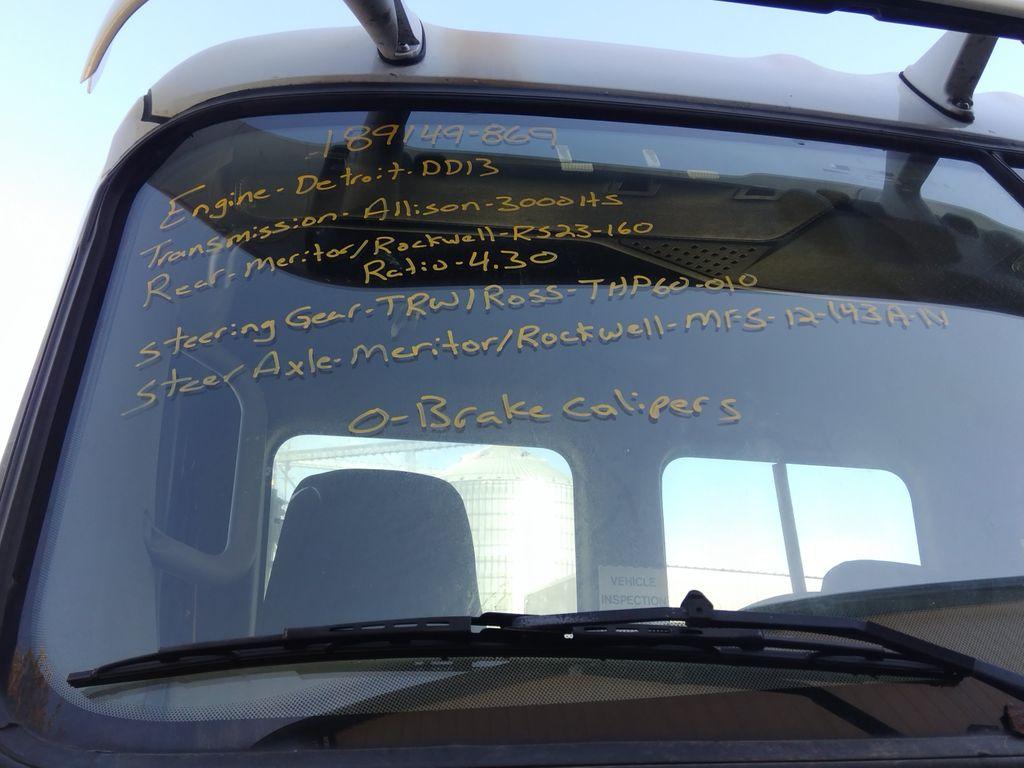 189149-869
Engine-Detroit-DD13
Transmission-Allison-3000HS
Rear-Meritor/Rockwell-RS23-160
Ratio-4.30
Steering Gear-TRW/Ross-THP60-010
Steer Axle-Meritor/Rockwell-MFS-12-143A-N
0-Brake Calipers
VEHICLE
INSPECTION